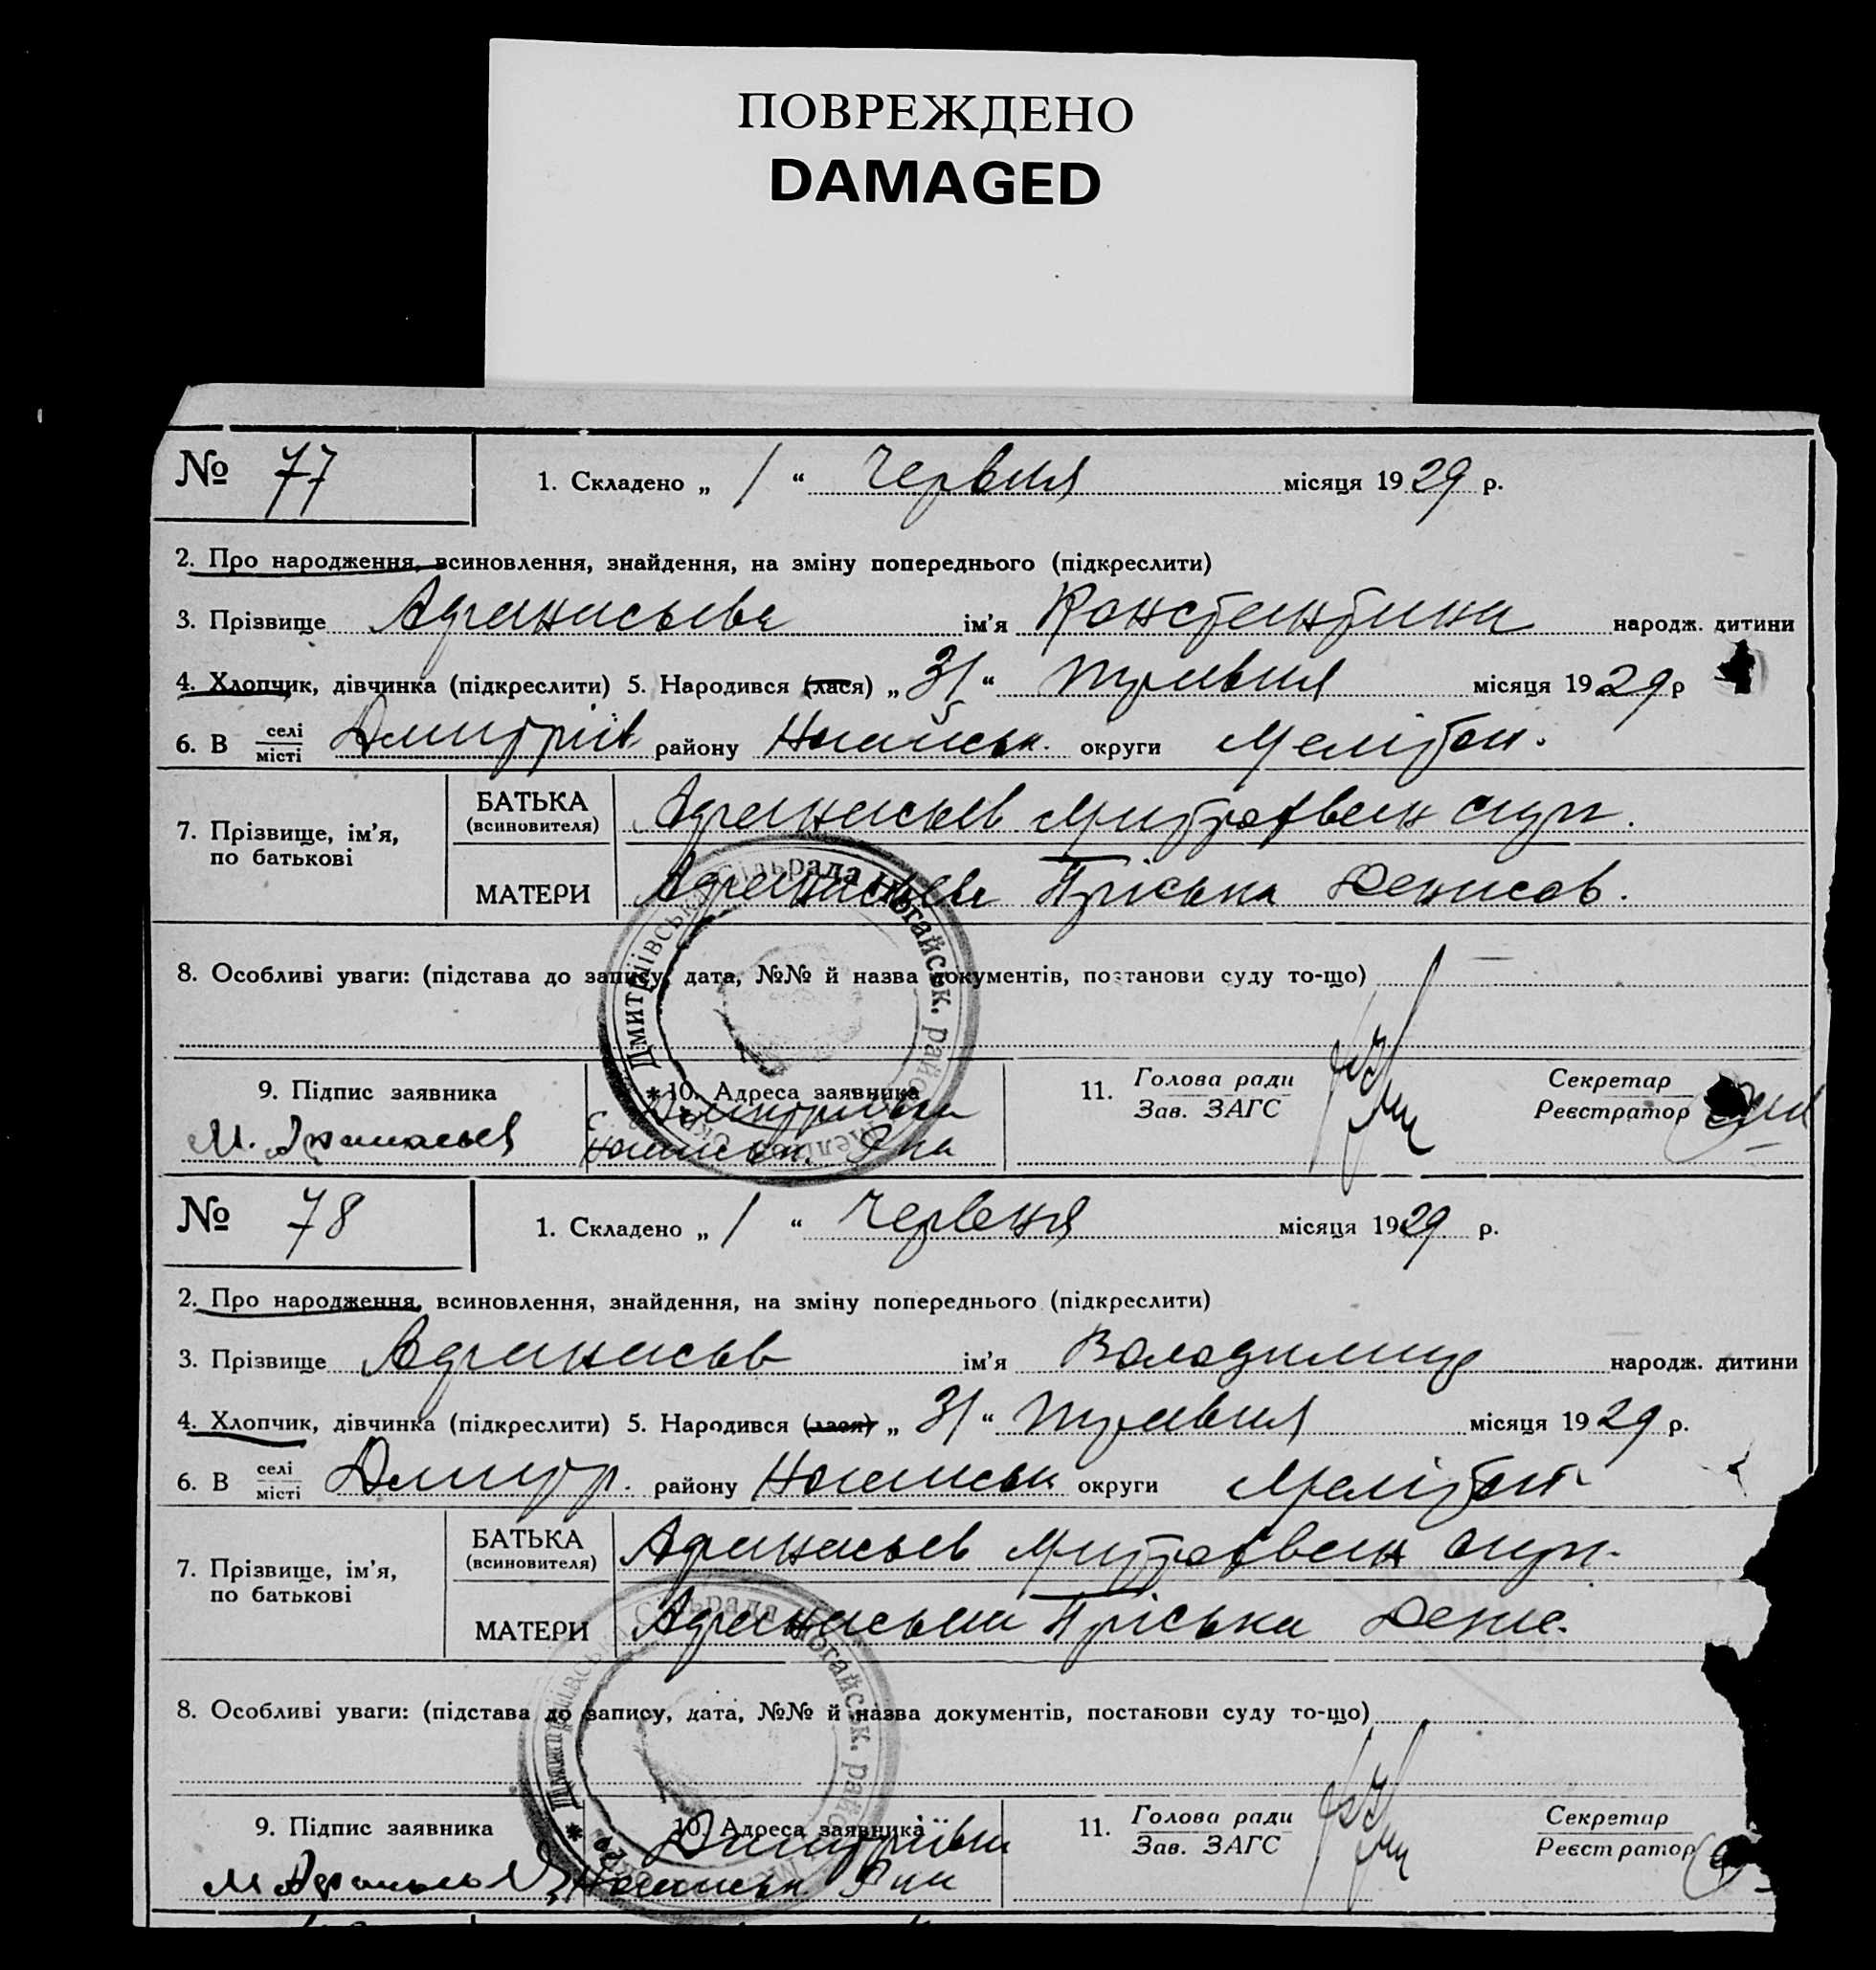 ПОВРЕЖДЕНО
DAMAGED
№ 77
1. Складено „ 1 “ Червня місяця 1929 р.
2. Про народження, всиновлення, знайдення, на зміну попереднього (підкреслити)
3. Прізвище Афанасьева ім’я Константина народж. дитини
4. Хлопчик, дівчинка (підкреслити) 5. Народився (лася) „ 31 “ травня місяця 1929 р
6. В селі місті Дмитрів. району Ногайськ. округи Меліт.
7. Прізвище, ім’я, по батькові
БАТЬКА (всиновителя) Афанасьев
МАТЕРИ Афанасьева Пріська Денисов.
8. Особливі уваги: (підстава до запису, дата, №№ й назва документів, постанови суду то-що)
Дмитріївська Сільрада Ногайськ. район
9. Підпис заявника
10. Адреса заявника
11. Голова ради
Зав. ЗАГС
Секретар
Реєстратор
М. Афанасьев
Ногайськ. Р-на
№ 78
1. Складено „ 1 “ Червеня місяця 1929 р.
2. Про народження, всиновлення, знайдення, на зміну попереднього (підкреслити)
3. Прізвище Афанасьв ім’я Володимир народж. дитини
4. Хлопчик, дівчинка (підкреслити) 5. Народився (лася) „ 31 “ травня місяця 1929 р.
6. В селі місті Дмитр. району Ногайськ округи Меліт
7. Прізвище, ім’я, по батькові
БАТЬКА (всиновителя) Афанасьев
МАТЕРИ Пріська Денис.
8. Особливі уваги: (підстава до запису, дата, №№ й назва документів, постанови суду то-що)
Сільрада Ногайськ. район
9. Підпис заявника
10. Адреса заявника
11. Голова ради
Зав. ЗАГС
Секретар
Реєстратор
Дмитріївка
Ногайськ. Р-на